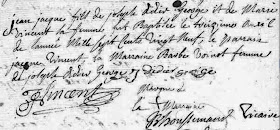 jean jacque fils de joseph Didier George et de Marie
vincent sa femme fut Baptisée le troisiemes Avril
de l'année Mille sept Cents Vingt Neuf. le parrain
jacque Vincent, la Marraine Barbe Voinot femme
de joseph Didier George J Didier george
JVincent Marque de
la Marraine
Vicaire